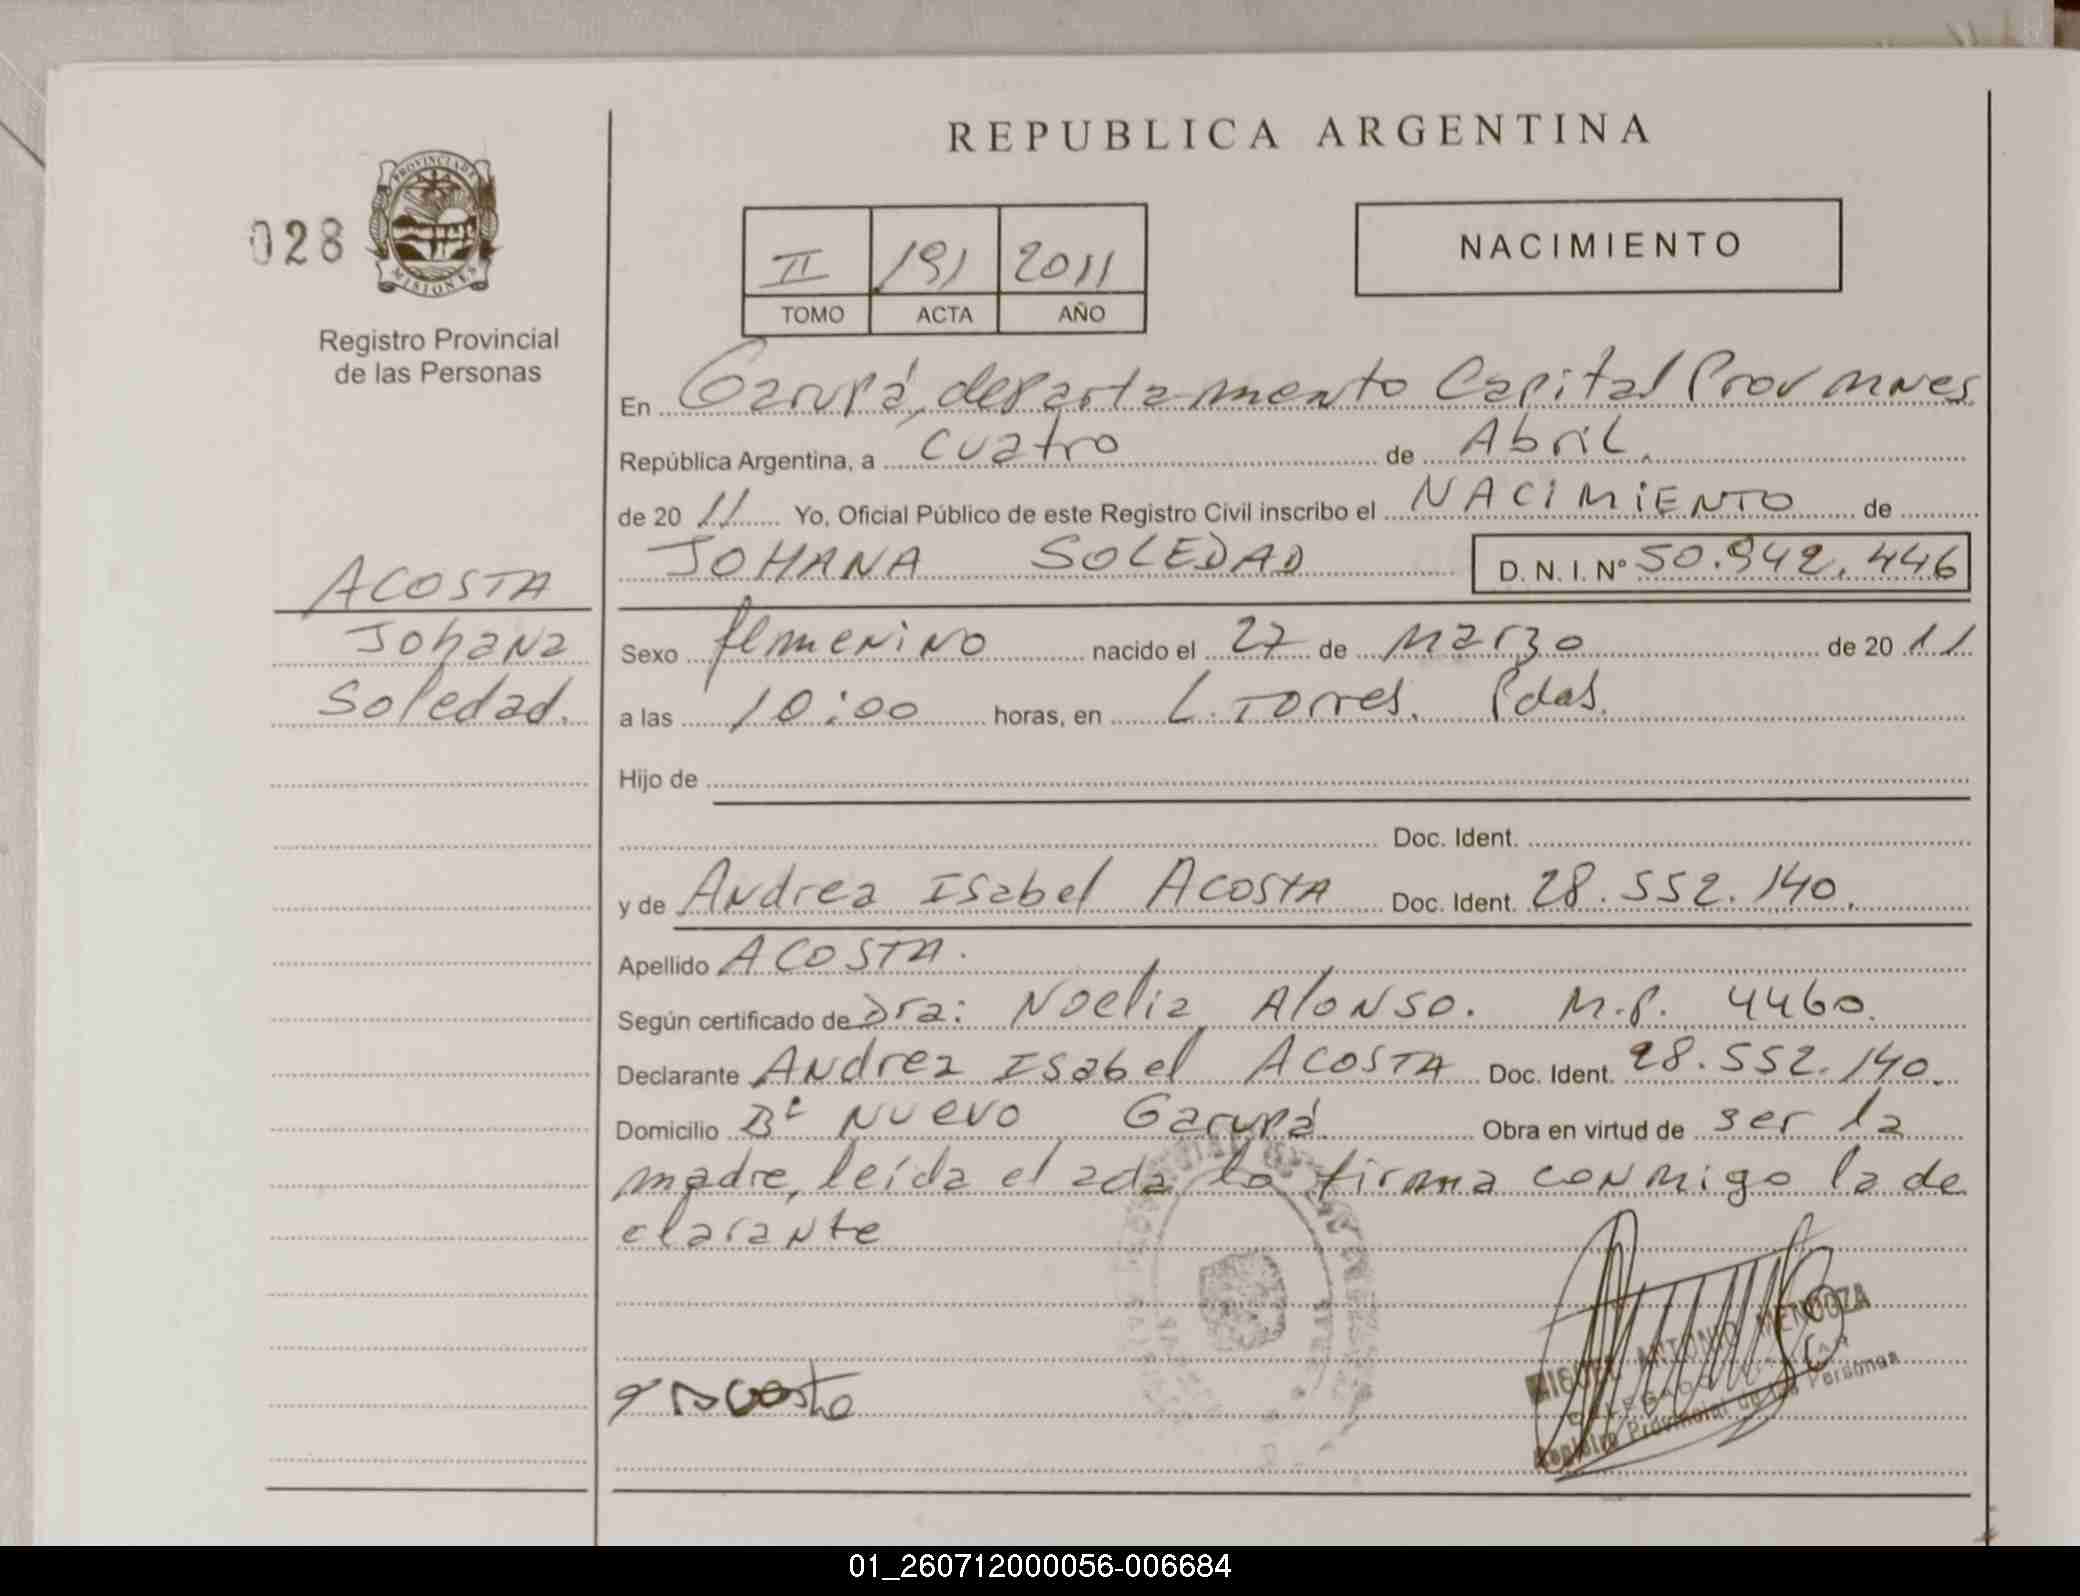 REPUBLICA ARGENTINA
028
PROVINCIA DE
MISIONES
Registro Provincial
de las Personas
II 191 2011
TOMO ACTA AÑO
NACIMIENTO
En Garupá, departamento Capital Prov mnes
República Argentina, a cuatro de Abril.
de 20 11 Yo, Oficial Público de este Registro Civil inscribo el NACIMIENTO de
JOHANA SOLEDAD D. N. I. Nº 50.942.446
ACOSTA
Johana
Soledad.
Sexo femenino nacido el 27 de marzo de 20 11
a las 10:00 horas, en L. Torres. Pdas.
Hijo de
Doc. Ident.
y de Andrea Isabel ACOSTA Doc. Ident. 28.552.140.
Apellido ACOSTA.
Según certificado de Dra: Noelia Alonso. M.P. 4460.
Declarante Andrea Isabel ACOSTA Doc. Ident. 28.552.140.
Domicilio Bº Nuevo Garupá. Obra en virtud de ser la
madre, leída el acta la firma conmigo la de
clarante
Acosta
MIGUEL ANTONIO MENDOZA
DELEGADO TITULAR
Registro Provincial de las Personas
01_260712000056-006684